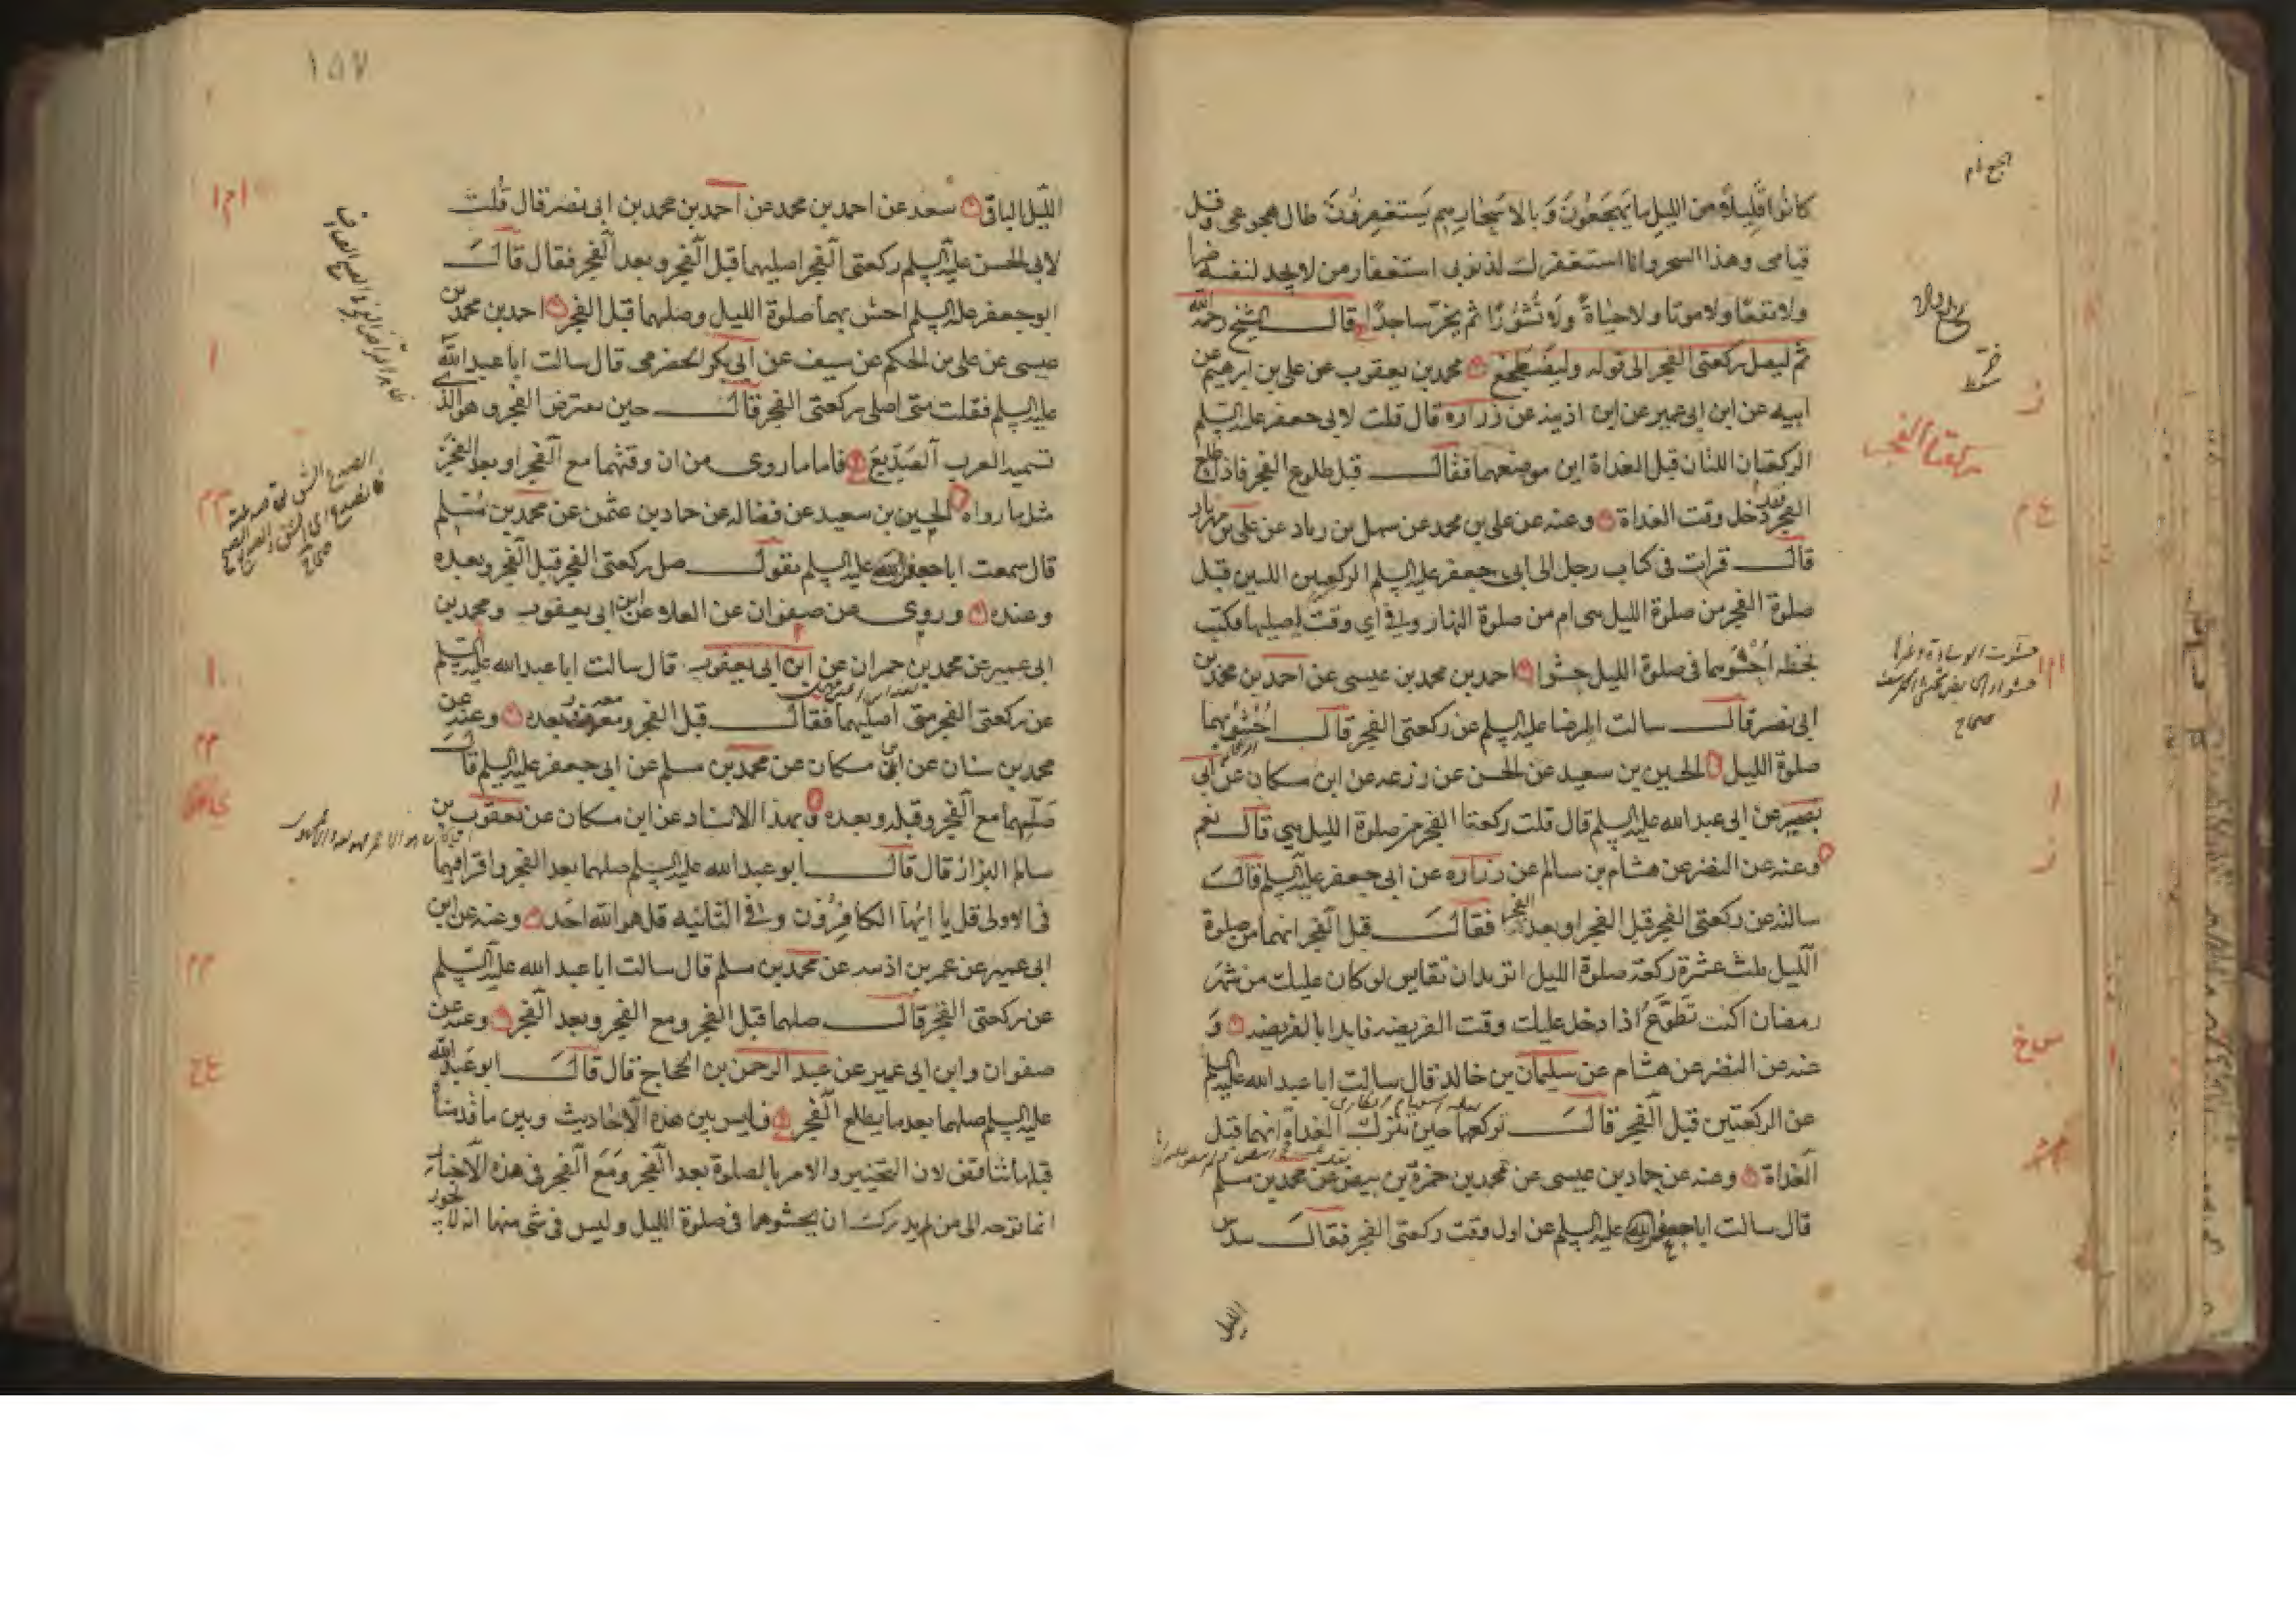 كانوا قليلا من الليل ما يهجعون وبالاسحار هم يستغفرون طال هجوعى وقل
قيامى وهذا السحر وانا استغفرك لذنوبى استغفار من لا يجد لنفسه ضرا
ولا نفعا ولا موتا ولا حياة ولا نشورا ثم يخر ساجدا قال الشيخ رحمه الله
ثم ليصل ركعتى الفجر الى قوله وليضطجع محمد بن يعقوب عن على بن ابرهيم عن
ابيه عن ابن ابى عمير عن ابن اذينه عن زراره قال قلت لابى جعفر عليه السلم
الركعتان اللتان قبل الغداة اين موضعهما فقال قبل طلوع الفجر فاذا طلع
الفجر فقد دخل وقت الغداة وعنه عن على بن محمد عن سهل بن زياد عن على بن مهزيار
قال قرات فى كتاب رجل الى ابى جعفر عليه السلم الركعتين اللتين قبل
صلوة الفجر من صلوة الليل هى ام من صلوة النهار وفى اى وقت اصليها فكتب
بخطه احشوهما فى صلوة الليل حشوا احمد بن محمد بن عيسى عن احمد بن محمد بن
ابى نصر قال سالت الرضا عليه السلم عن ركعتى الفجر قال احشوا بهما
صلوة الليل الحسين بن سعيد عن الحسن عن زرعه عن ابن مسكان عن ابى
بصير عن ابى عبد الله عليه السلم قال قلت ركعتا الفجر من صلوة الليل هى قال نعم
وعنه عن النضر عن هشام بن سالم عن زراره عن ابى جعفر عليه السلم قال
سالته عن ركعتى الفجر قبل الفجر او بعد الفجر فقال قبل الفجر انهما من صلوة
الليل ثلث عشرة ركعة صلوة الليل اتريد ان تقايس لو كان عليك من شهر
رمضان اكنت تطوع اذا دخل عليك وقت الفريضه فابدا بالفريضه و
عنه عن النضر عن هشام عن سليمان بن خالد قال سالت ابا عبد الله عليه السلم
عن الركعتين قبل الفجر قال تركعهما حين تترك الغداة انهما قبل
الغداة وعنه عن حماد بن عيسى عن محمد بن حمزة بن بيض عن محمد بن مسلم
قال سالت ابا جعفر عليه السلم عن اول وقت ركعتى الفجر فقال سدس
الليل
ركعتا الفجر
صحاح
١٥٧
الليل الباقى سعد عن احمد بن محمد عن احمد بن محمد بن ابى نصر قال قلت
لابى الحسن عليه السلم ركعتى الفجر اصليهما قبل الفجر وبعد الفجر فقال قال
ابو جعفر عليه السلم احش بهما صلوة الليل وصلهما قبل الفجر احمد بن محمد بن
عيسى عن على بن الحكم عن سيف عن ابى بكر الحضرمى قال سالت ابا عبد الله
عليه السلم فقلت متى اصلى ركعتى الفجر قال حين يعترض الفجر وهو الذى
تسميه العرب الصديع فاما ما روى من ان وقتهما مع الفجر او بعد الفجر
مثل ما رواه الحسين بن سعيد عن فضاله عن حماد بن عثمن عن محمد بن مسلم
قال سمعت ابا جعفر عليه السلم يقول صل ركعتى الفجر قبل الفجر وبعده
وعنده وروى عن صفوان عن العلا عن ابن ابى يعقوب ومحمد بن
ابى عمير عن محمد بن حمران عن ابن ابى يعقوب قال سالت ابا عبد الله عليه السلم
عن ركعتى الفجر متى اصليهما فقال قبل الفجر ومعه وبعده وعنه عن
محمد بن سنان عن ابن مسكان عن محمد بن مسلم عن ابى جعفر عليه السلم قال
صلهما مع الفجر وقبله وبعده وبهذا الاسناد عن ابن مسكان عن يعقوب بن
سالم البزاز قال قال ابو عبد الله عليه السلم صلهما بعد الفجر واقرا فيهما
فى الاولى قل يا ايها الكافرون وفى الثانيه قل هو الله احد وعنه عن ابن
ابى عمير عن عمر بن اذينه عن محمد بن مسلم قال سالت ابا عبد الله عليه السلم
عن ركعتى الفجر قال صلهما قبل الفجر ومع الفجر وبعد الفجر وعنه عن
صفوان وابن ابى عمير عن عبد الرحمن بن الحجاج قال قال ابو عبد الله
عليه السلم صلهما بعد ما يطلع الفجر فليس بين هذه الاحاديث وبين ما قدمناه
قبلها تناقض لان التخيير والامر بالصلوة بعد الفجر ومع الفجر فى هذه الاخبار
انما توجه الى من لم يدرك ان يحشوهما فى صلوة الليل وليس فى شى منها انه لا يجوز